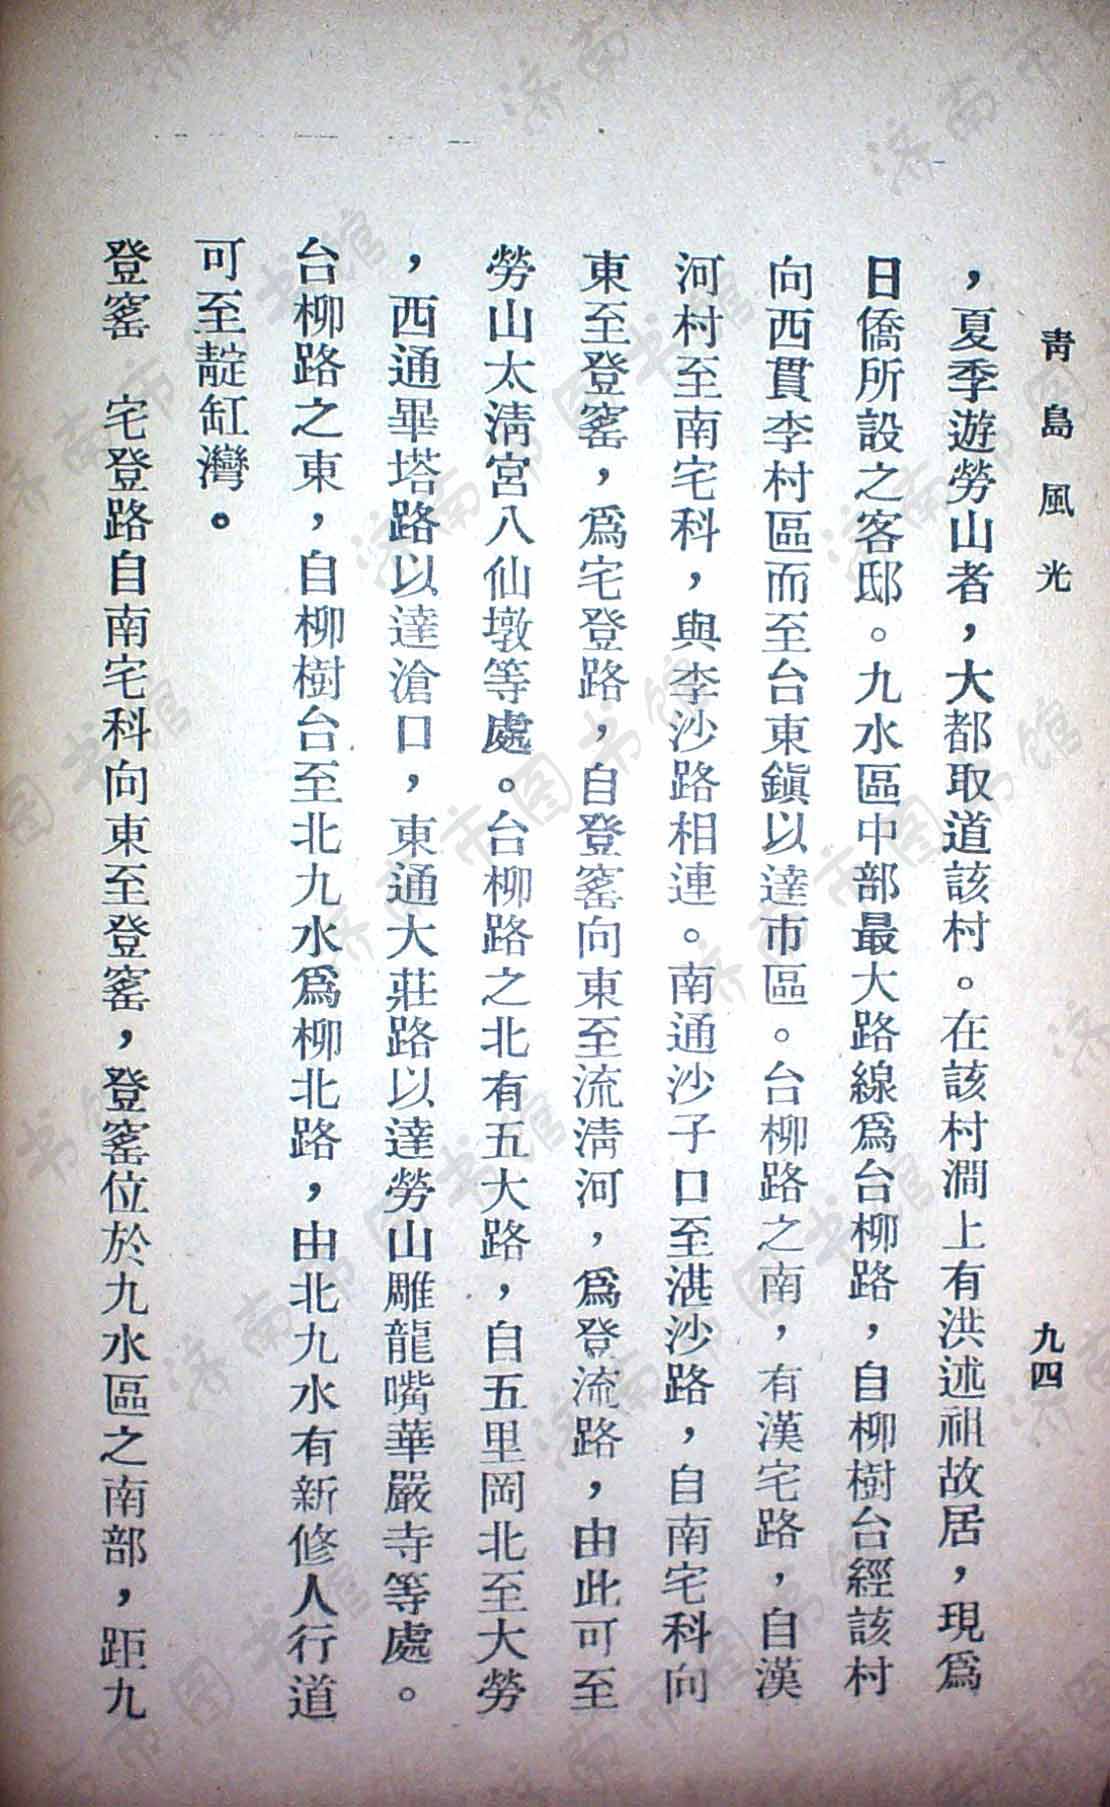 青島風光
九四
，夏季遊勞山者，大都取道該村。在該村澗上有洪述祖故居，現爲
日僑所設之客邸。九水區中部最大路線爲台柳路，自柳樹台經該村
向西貫李村區而至台東鎭以達市區。台柳路之南，有漢宅路，自漢
河村至南宅科，與李沙路相連。南通沙子口至湛沙路，自南宅科向
東至登窰，爲宅登路，自登窰向東至流淸河，爲登流路，由此可至
勞山太淸宮八仙墩等處。台柳路之北有五大路，自五里岡北至大勞
，西通畢塔路以達滄口，東通大莊路以達勞山雕龍嘴華嚴寺等處。
台柳路之東，自柳樹台至北九水爲柳北路，由北九水有新修人行道
可至靛缸灣。
登窰　宅登路自南宅科向東至登窰，登窰位於九水區之南部，距九
济南市图书馆